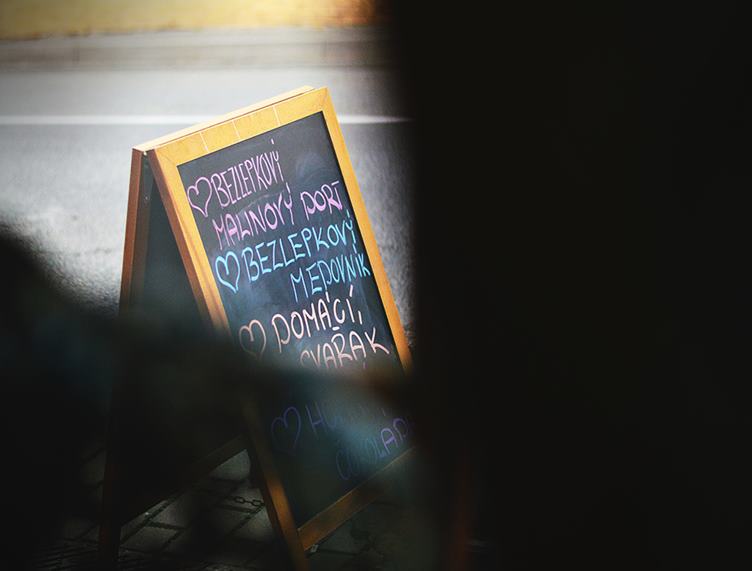 BEZLEPKOVÝ
MALINOVÝ DORT
BEZLEPKOVÝ
MEDOVNÍK
DOMÁCÍ,
SVAŘÁK